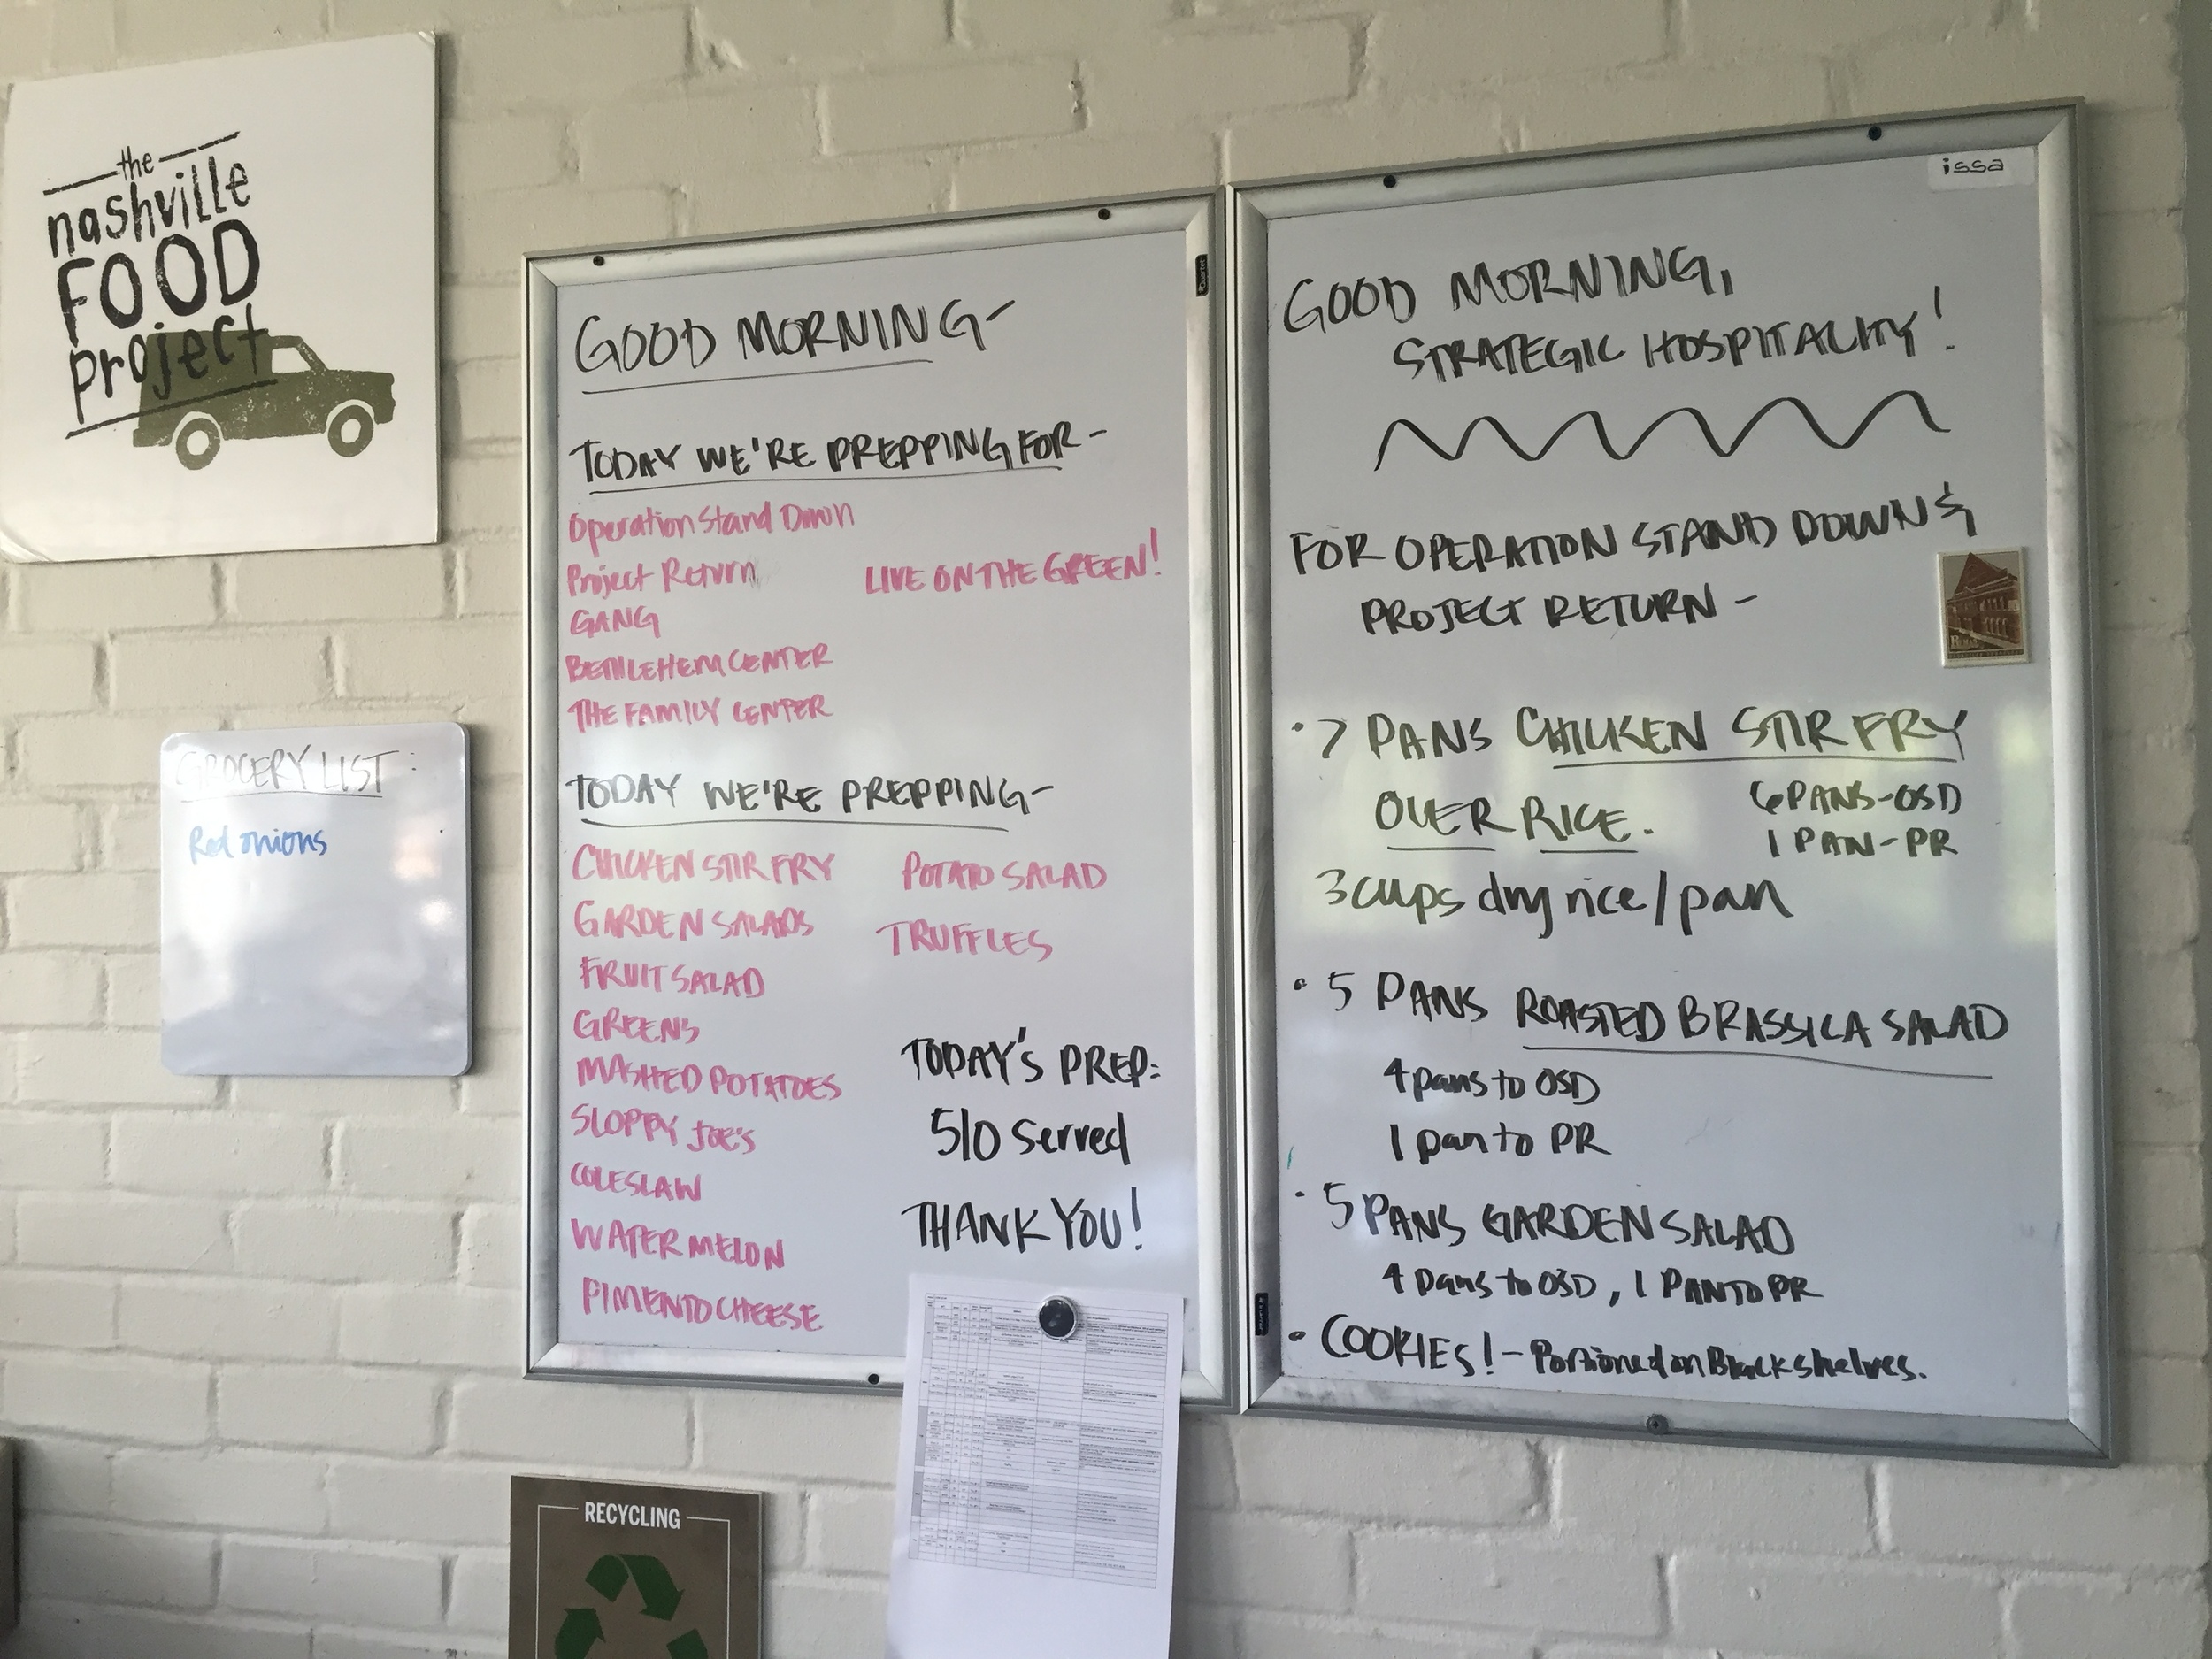 the
nashville
FOOD
project
GROCERY LIST:
Red onions
GOOD MORNING-
TODAY WE'RE PREPPING FOR -
Operation Stand Down
Project Return
LIVE ON THE GREEN!
GANG
BETHLEHEM CENTER
THE FAMILY CENTER
TODAY WE'RE PREPPING-
CHICKEN STIR FRY
GARDEN SALADS
FRUIT SALAD
GREENS
MASHED POTATOES
SLOPPY JOE'S
COLESLAW
WATERMELON
PIMENTO CHEESE
POTATO SALAD
TRUFFLES
TODAY'S PREP:
510 Served
THANK YOU!
issa
GOOD MORNING,
STRATEGIC HOSPITALITY!
FOR OPERATION STAND DOWN &
PROJECT RETURN -
• 7 PANS CHICKEN STIR FRY
OVER RICE.
6 PANS-OSD
1 PAN-PR
3 cups dry rice/pan
• 5 PANS ROASTED BRASSICA SALAD
4 pans to OSD
1 pan to PR
• 5 PANS GARDEN SALAD
4 pans to OSD, 1 PAN TO PR
• COOKIES! - Portioned on Black shelves.
RECYCLING